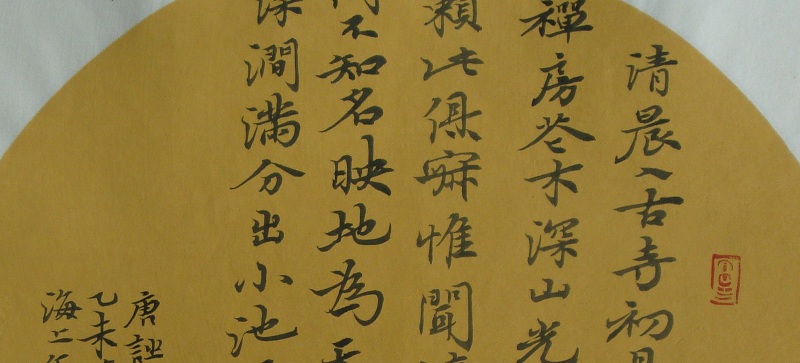 清晨入古寺初
禪房花木深山光
籟此俱寂惟聞
不知名映地為
深澗滿分出小池
唐詩
乙未
海上